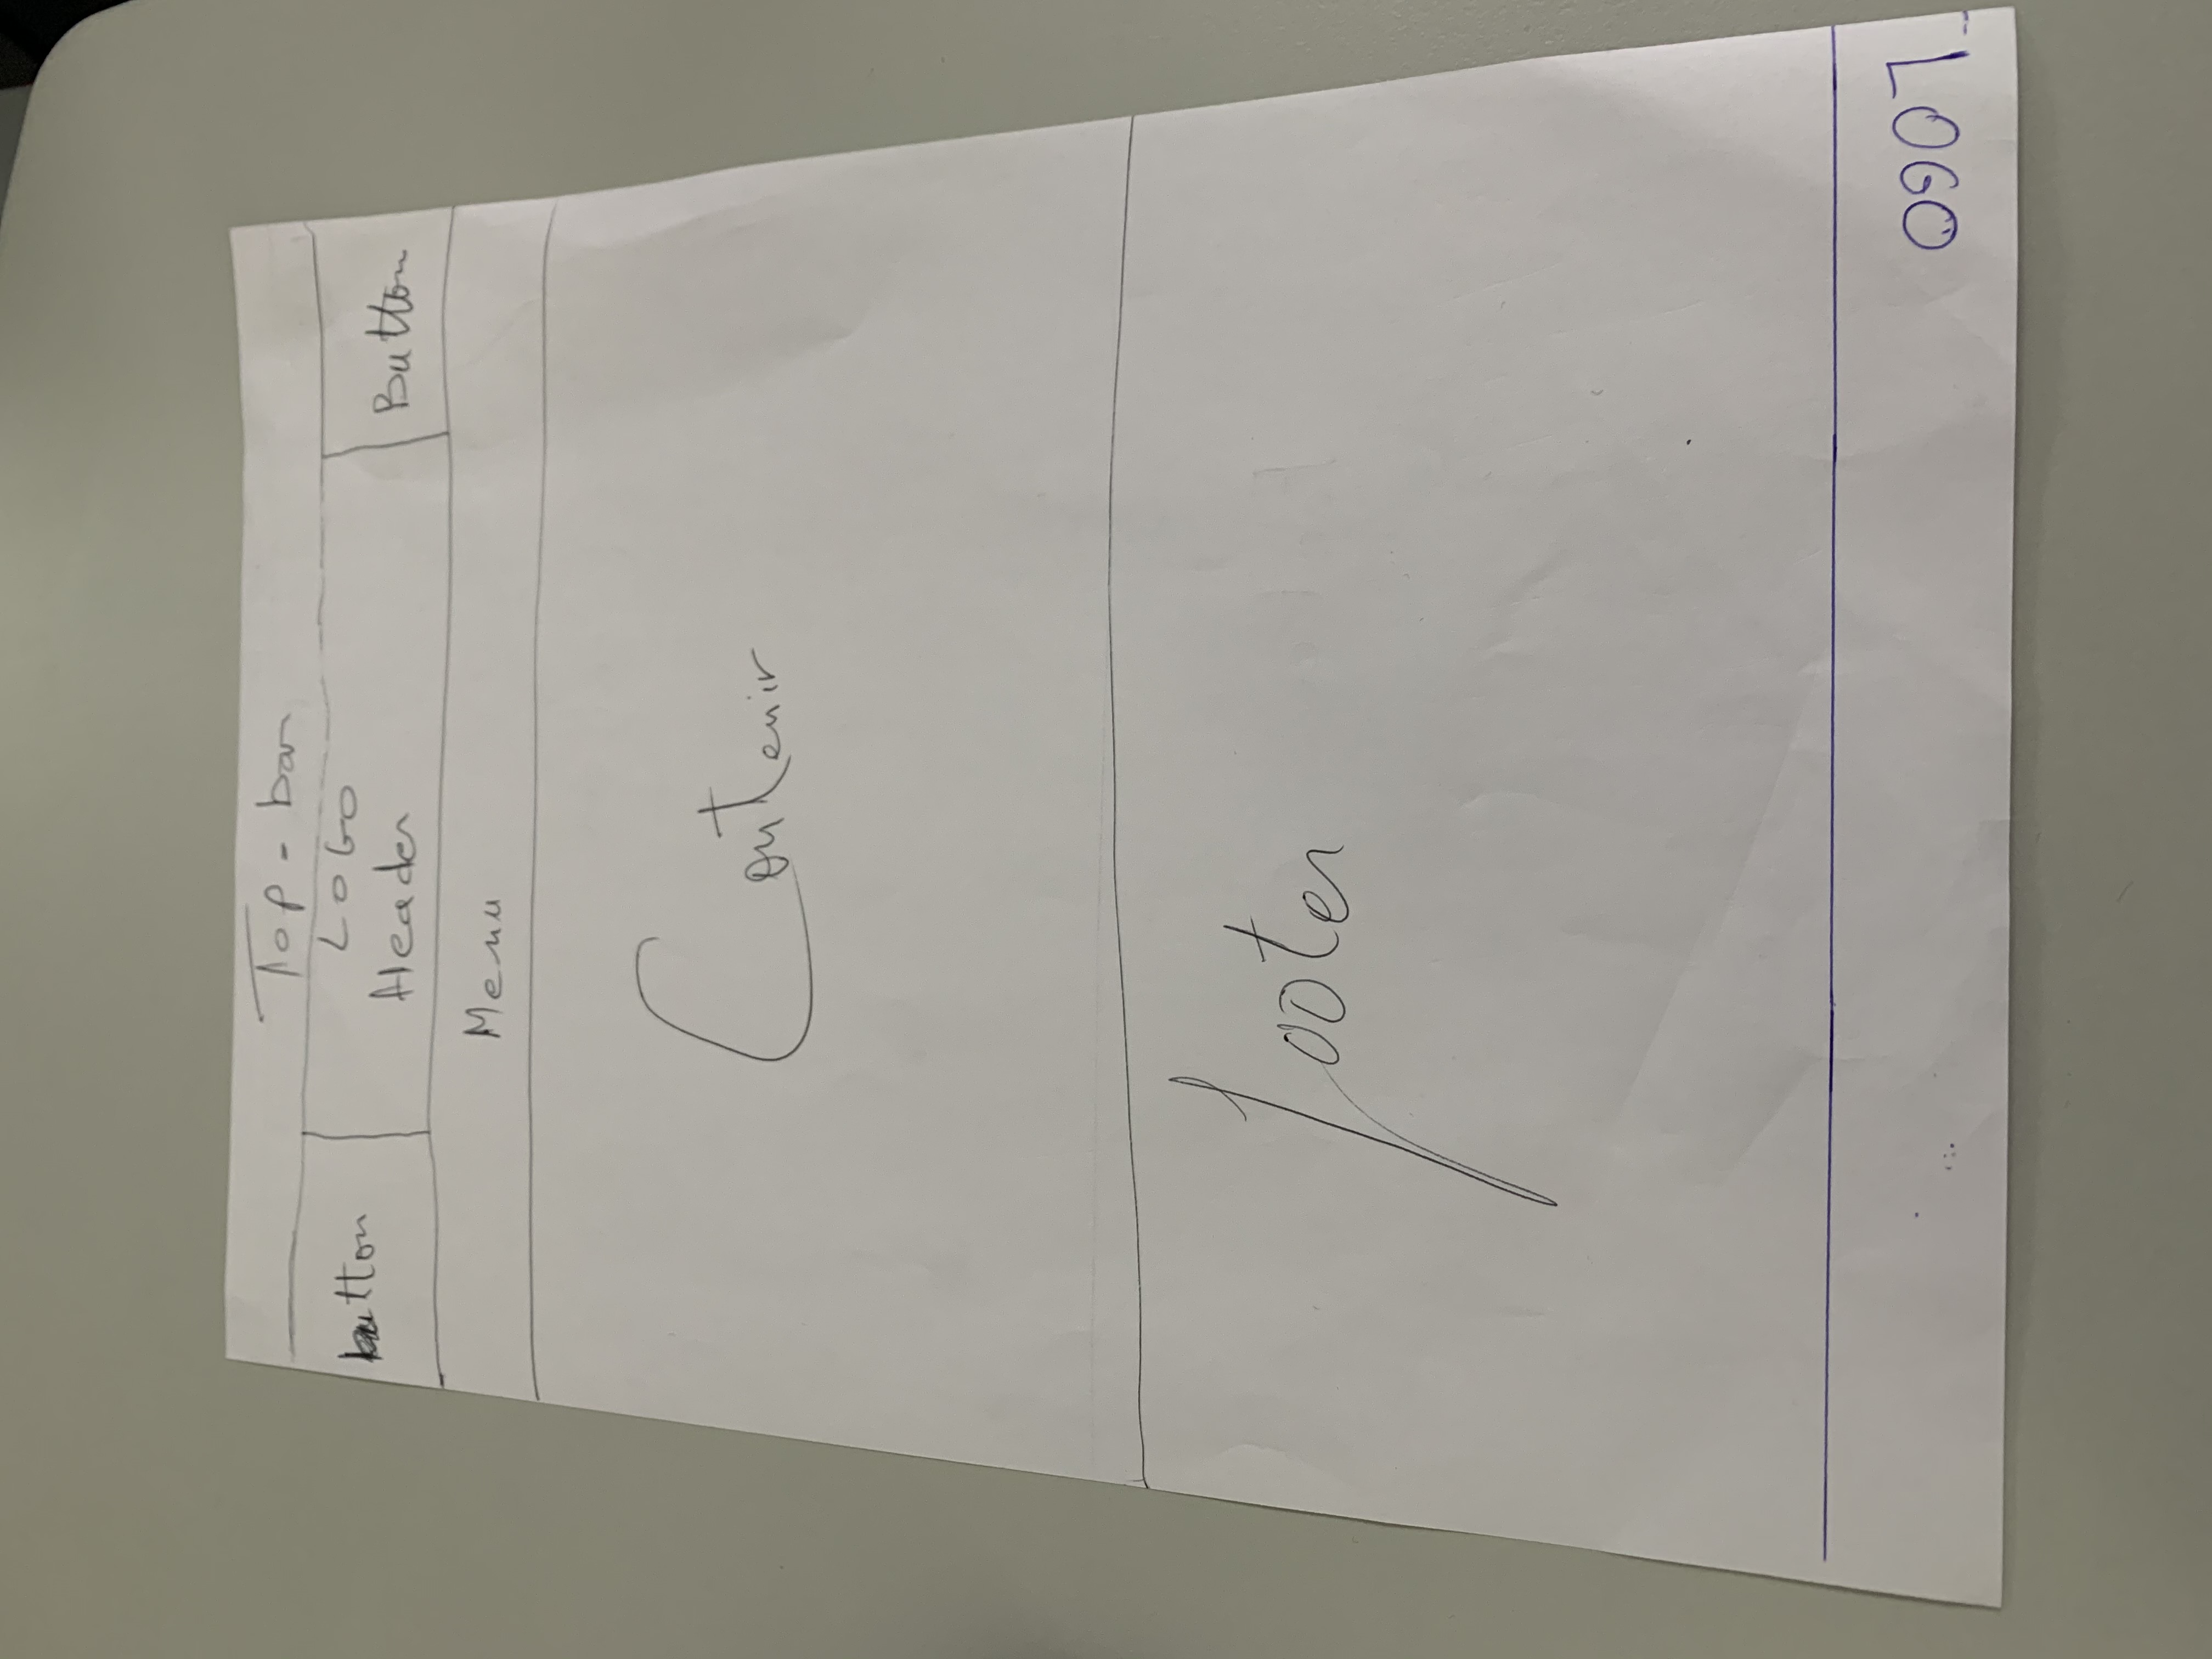 Top - bar
button
LOGO
Header
Button
Menu
Contenir
footer
LOGO